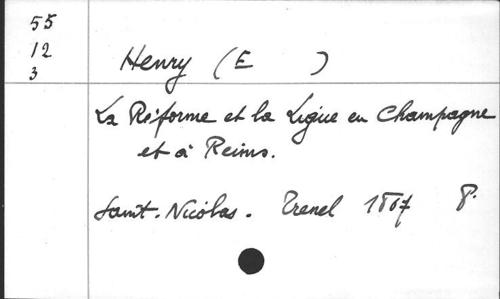 55
12
3
Henry (E )
La Réforme et la Ligue en Champagne
et à Reims.
Saint-Nicolas. Trenel 1867 8.